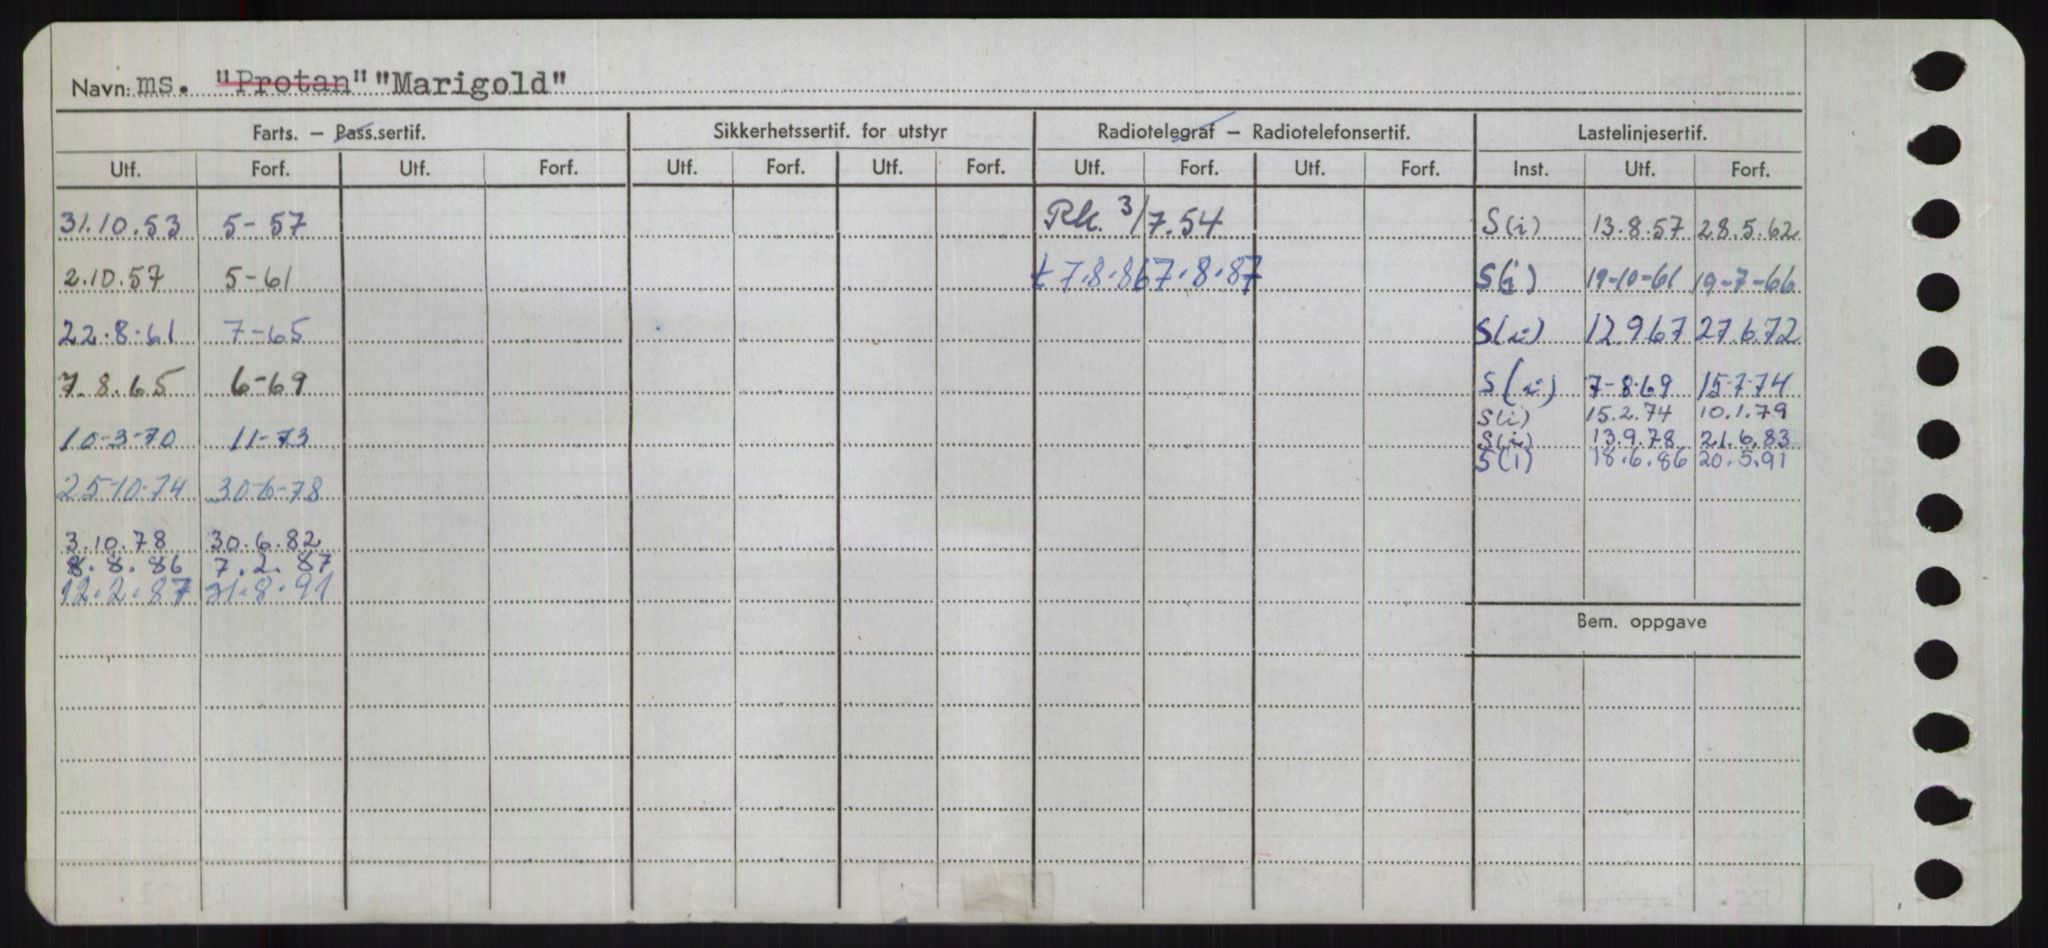 Navn: ms. "Protan" "Marigold"
Farts. – Pass.sertif. Sikkerhetssertif. for utstyr Radiotelegraf – Radiotelefonsertif. Lastelinjesertif.
Utf. Forf. Utf. Forf. Utf. Forf. Utf. Forf. Utf. Forf. Utf. Forf. Inst. Utf. Forf.
31.10.53 5-57 Rk. 3/7.54 S(i) 13.8.57 28.5.62
2.10.57 5-61 t 7.8.86 7.8.87 S(i) 19-10-61 19-7-66
22.8.61 7-65 S(i) 12.9.67 27.6.72
7.8.65 6-69 S(i) 7-8-69 15-7-74
S(i) 15.2.74 10.1.79
10-3-70 11-73 S(i) 13.9.78 21.6.83
S(i) 18.6.86 20.5.91
25-10-74 30-6-78
3.10.78 30.6.82
8.8.86 7.2.87
12.2.87 31.8.91
Bem. oppgave